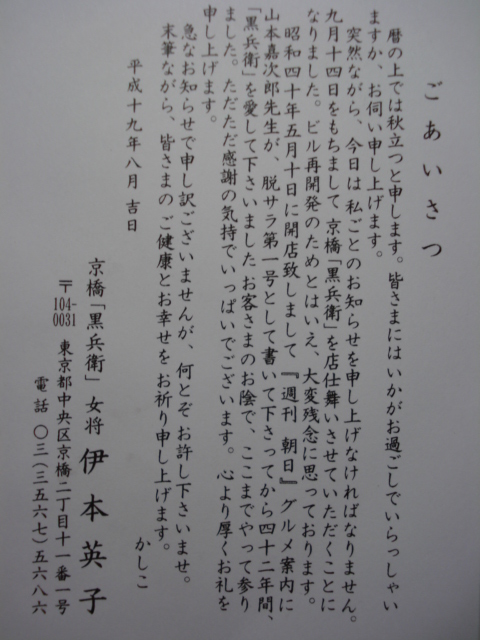 ごあいさつ
暦の上では秋立つと申します。皆さまにはいかがお過ごしでいらっしゃい
ますか、お伺い申し上げます。
突然ながら、今日は私ごとのお知らせを申し上げなければなりません。
九月十四日をもちまして京橋「黒兵衛」を店仕舞いさせていただくことに
なりました。ビル再開発のためとはいえ、大変残念に思っております。
昭和四十年五月十日に開店致しまして『週刊 朝日』グルメ案内に
山本嘉次郎先生が、脱サラ第一号として書いて下さってから四十二年間、
「黒兵衛」を愛して下さいましたお客さまのお陰で、ここまでやって参り
ました。ただただ感謝の気持でいっぱいでございます。心より厚くお礼を
申し上げます。
急なお知らせで申し訳ございませんが、何とぞお許し下さいませ。
末筆ながら、皆さまのご健康とお幸せをお祈り申し上げます。
かしこ
平成十九年八月 吉日
京橋「黒兵衛」女将 伊本英子
〒104-0031 東京都中央区京橋二丁目十一番一号
電話 〇三(三五六七)五六八六